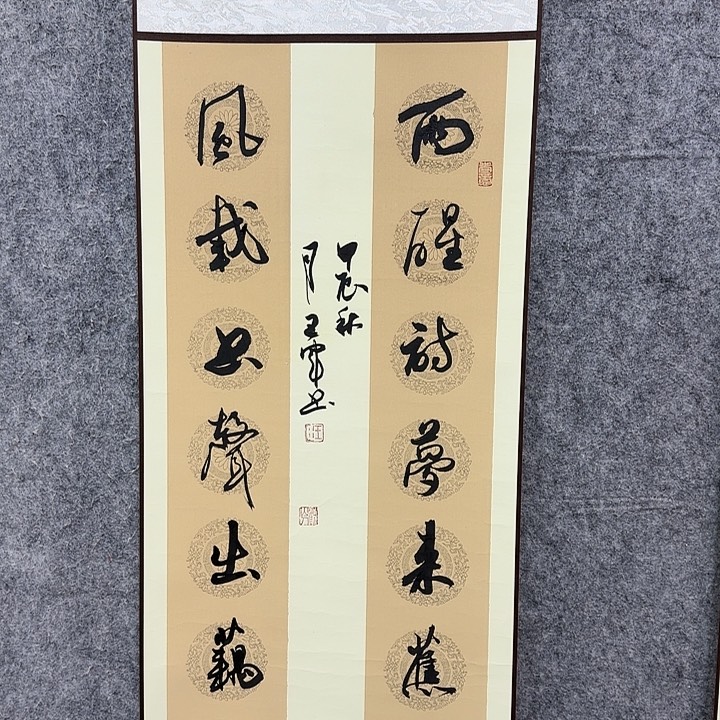 雨醒詩夢来蕉
風載书聲出藕
甲辰秋
月王軍书